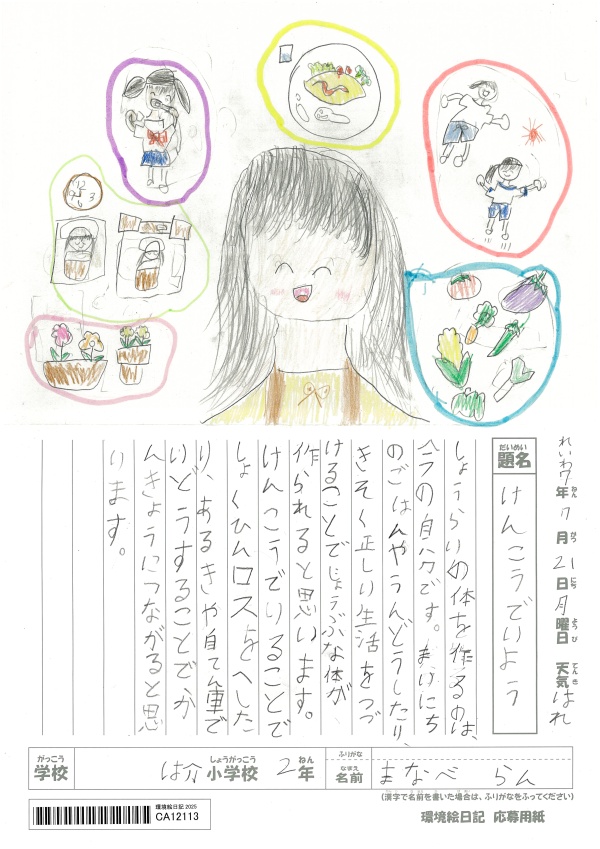 12
3
6
れいわ7年ねん7月がつ21日にち月曜日ようび 天気てんき はれ
題名だいめい
けんこうでいよう
しょうらいの体を作るのは、
今の自分です。まいにち
のごはんやうんどうしたり、
きそく正しい生活をつづ
けることでじょうぶな体が
作られると思います。
けんこうでいることで
しょくひんロスをへした
り、あるきや自てん車で
いどうすることでか
んきょうにつながると思
います。
学校がっこう
小学校しょうがっこう 2年ねん
名前なまえ ふりがな
まなべ らん
(漢字で名前を書いた場合は、ふりがなをふってください)
環境絵日記 2025
CA12113
環境絵日記 応募用紙